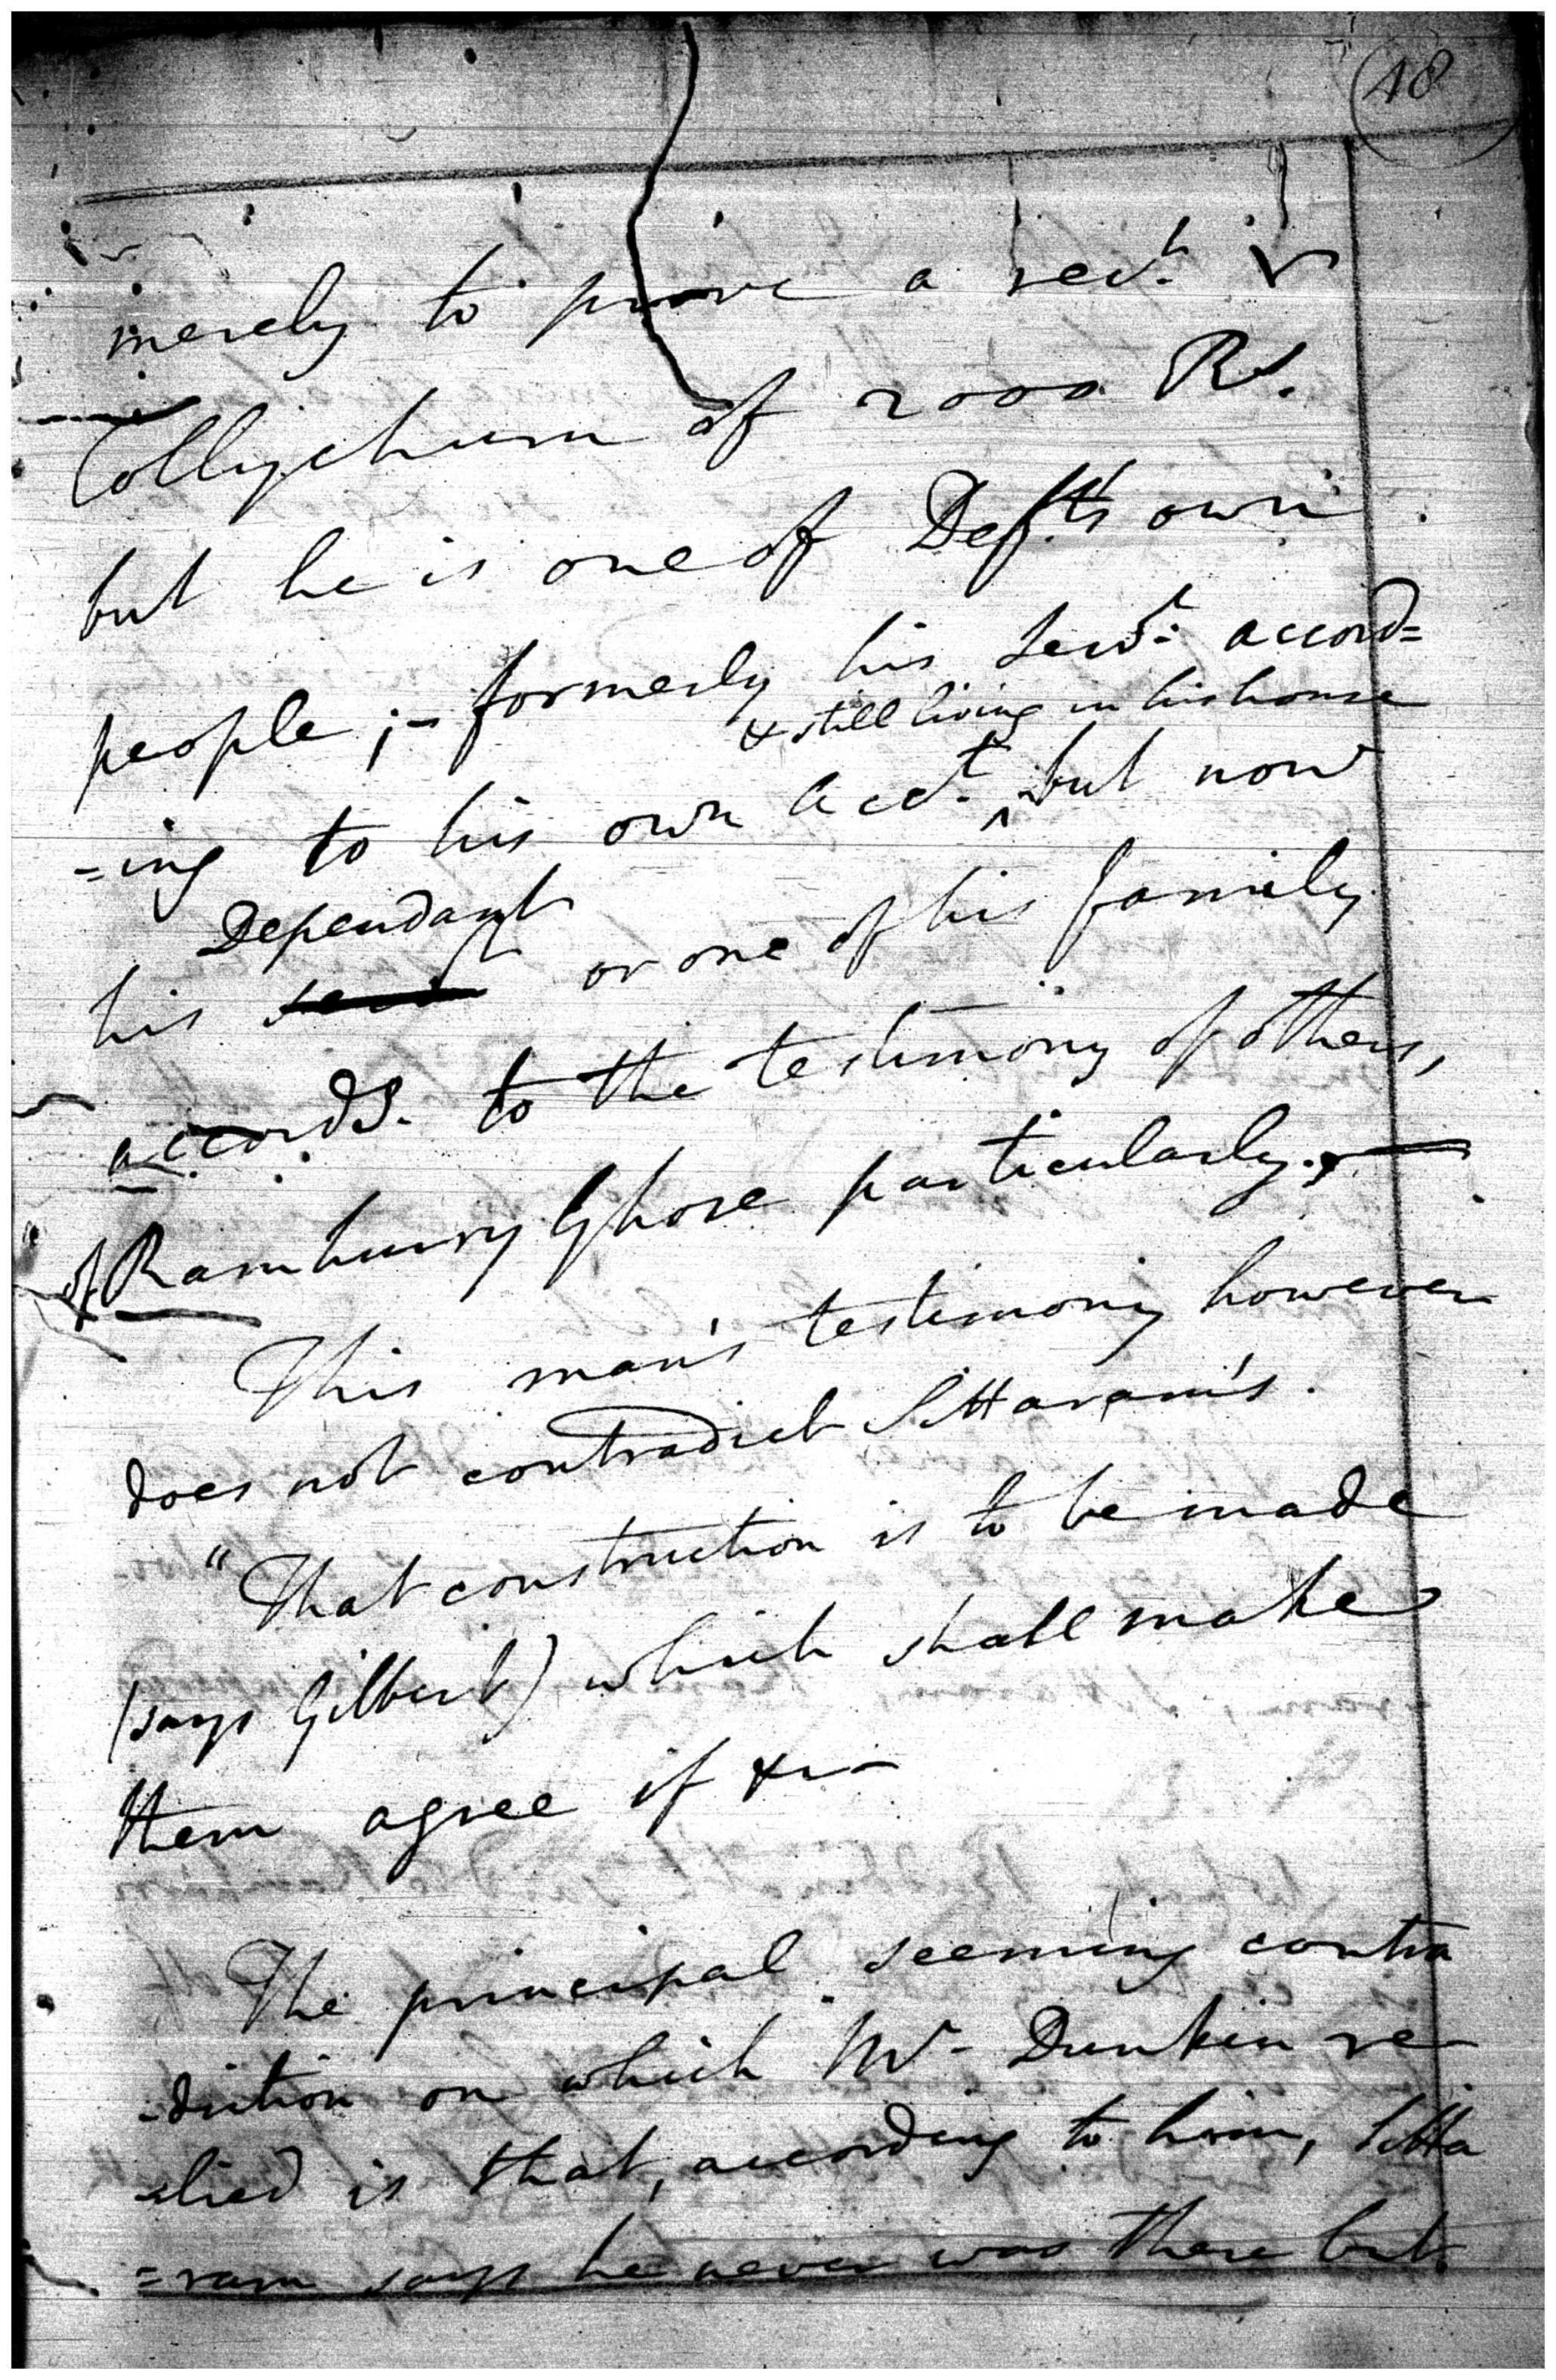 48
merely to prove a rect.
Collychurn of 2000 Rs.
but he is one of Deft's own
people ;- formerly his Servt. accord=
& still living in his house
=ing to his own acct. but now
Dependant
his or one of his family
accordg. to the testimony of others,
of Ramhurry Ghose particularly.
This man's testimony however
does not contradict Sittaram's.
"That construction is to be made
(says Gilbert) which shall make
them agree if &c
The principal seeming contra
-diction on which Mr. Dunkin re
-lied is that, according to him, Sitta
=ram says he never was there but